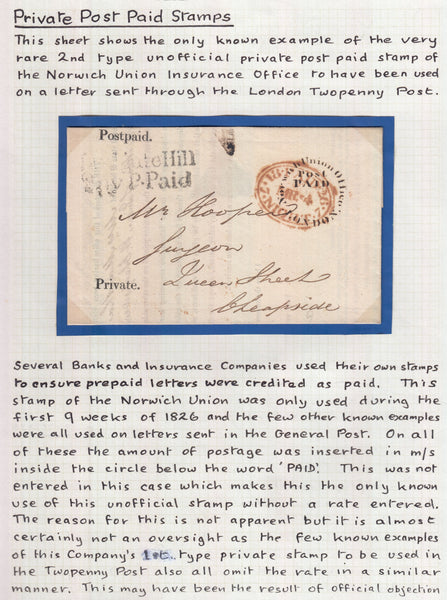 Private Post Paid Stamps
This sheet shows the only known example of the very
rare 2nd type unofficial private post paid stamp of
the Norwich Union Insurance Office to have been used
on a letter sent through the London Twopenny Post.
Postpaid.
Hill
P.Paid
Union Office
Post
PAID
LONDON.
Mr Hooper
Surgeon
Private.
Queen Street
Cheapside
Several Banks and Insurance Companies used their own stamps
to ensure prepaid letters were credited as paid. This
stamp of the Norwich Union was only used during the
first 9 weeks of 1826 and the few other known examples
were all used on letters sent in the General Post. On all
of these the amount of postage was inserted in m/s
inside the circle below the word 'PAID'. This was not
entered in this case which makes this the only known
use of this unofficial stamp without a rate entered.
The reason for this is not apparent but it is almost
certainly not an oversight as the few known examples
of this Company's 1st. type private stamp to be used in
the Twopenny Post also all omit the rate in a similar
manner. This may have been the result of official objection